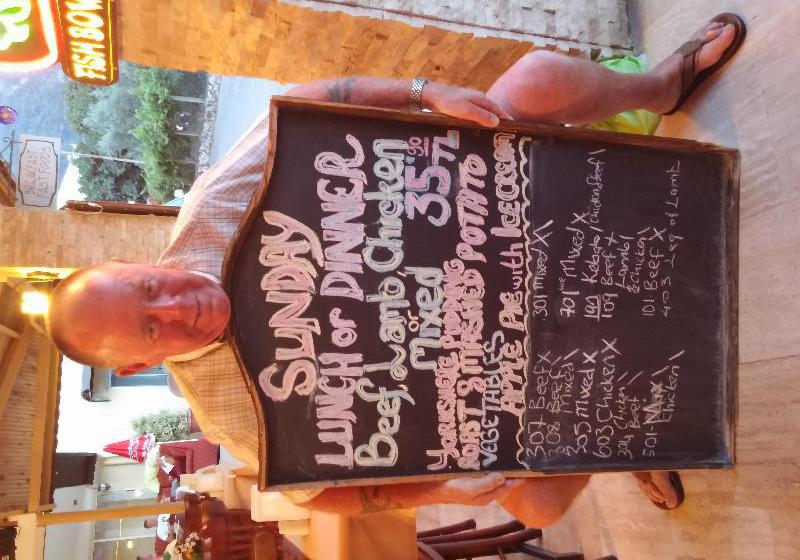 SUNDAY
LUNCH or DINNER
Beef, Lamb, Chicken
or
Mixed
35.90 TL
YORKSHIRE PUDDING
ROAST & MASHED POTATO
VEGETABLES
APPLE PIE with ICE CREAM
307 Beef X
308 Beef
Mixed \
505 Mixed X
603 Chicken X
Chicken \
Beef
501
Chicken \
301 Mixed X \
701 Mixed X
109 Beef +
Lamb /
& Chicken
101 Beef X
403 2 Leg of Lamb
FISH BOW
BREAKFAST
FAST FOODS